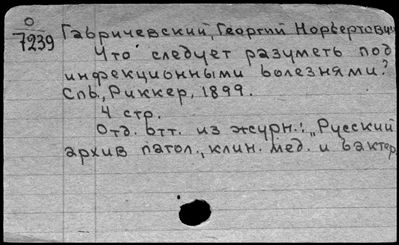 О
7239
Габричевский, Георгий Норбертович
Что следует разуметь под
инфекционными болезнями?
Спб., Риккер, 1899.
4 стр.
Отд. отт. из журн.: „Русский
архив патол., клин. мед. и бактер